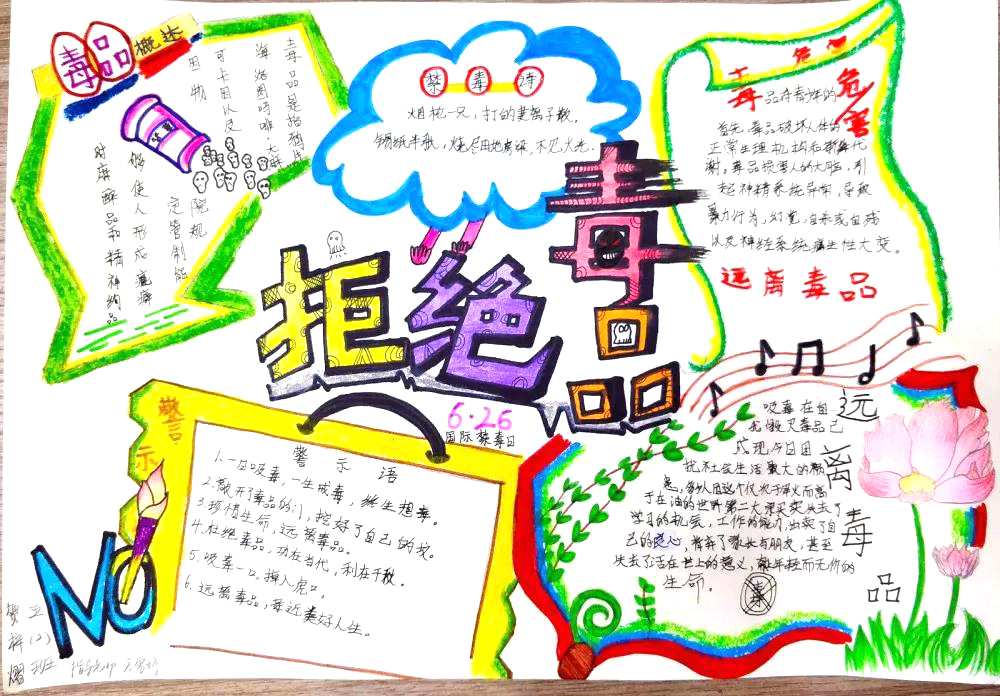 毒品概述
毒品是指鸦片
海洛因吗啡、大麻
可卡因以及
因物
院规
定管制能
够使人形成瘾癖
时麻醉品和精神药品
禁毒诗
烟枪一只，打的妻离子散。
锡纸半张，烧尽田地房梁，不见火光。
拒绝毒品
6·26
国际禁毒日
危
危害
毒品对青少年的
首先，毒品破坏人体的
正常生理机构和新陈代
谢，毒品损害人的大脑，引
起神精系统异常，导致
暴力行为，幻觉，自杀或自残
以及神经系统病生性大变。
远离毒品
警示
警示语
1.一日吸毒，一生戒毒，终生想毒。
2.敲开了毒品的门，挖好了自己的坟。
3.珍惜生命，远离毒品。
4.杜绝毒品，功在当代，利在千秋。
5.吸毒一口，掉入虎口。
6.远离毒品，靠近美好人生。
NO
远离毒品
吸毒在自
我毁灭毒品已
成现今日困
扰社会生活最大的祸
于在油的世界第二大
学习的机会，工作的能力，出卖了自
己的良心，背弃了家长与朋友，甚至
失去了活在世上的意义，献年轻而无价的
生命。
毒
五
(2)
班